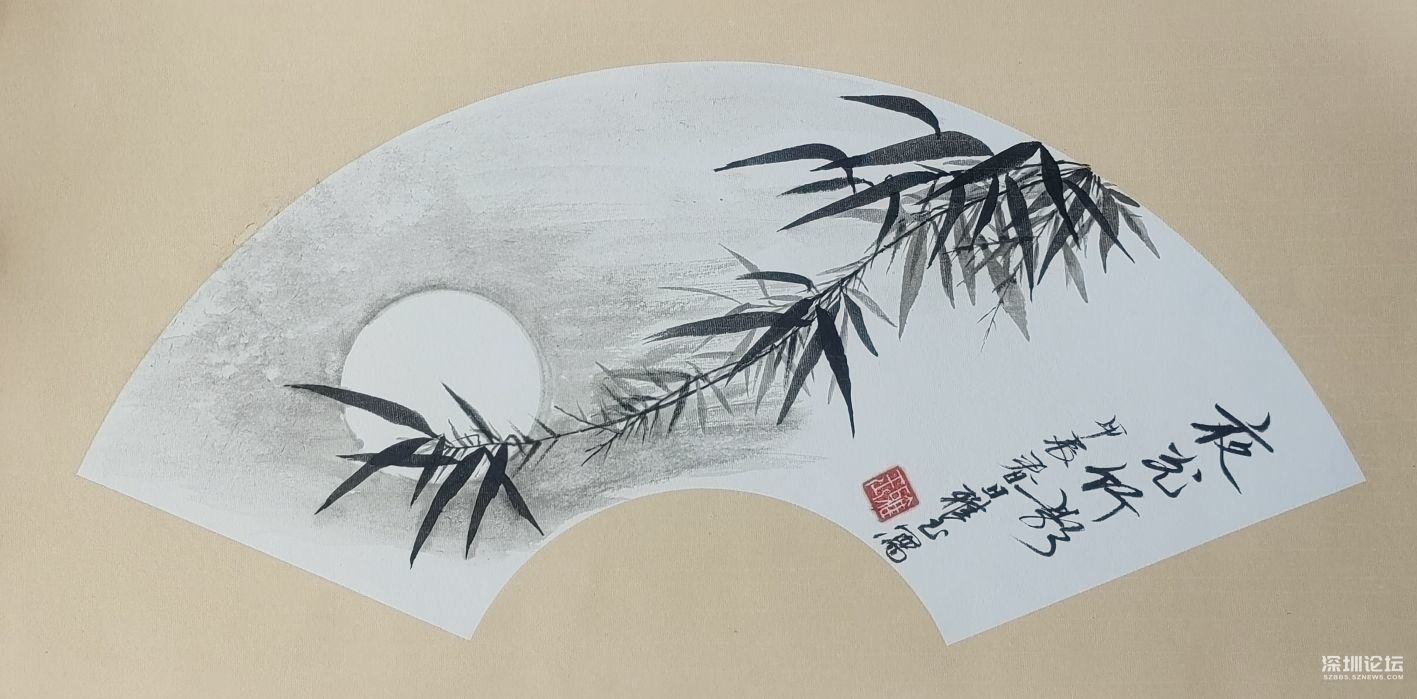 夜光竹影
甲辰春日雅画
深圳论坛
SZBBS.SZNEWS.COM